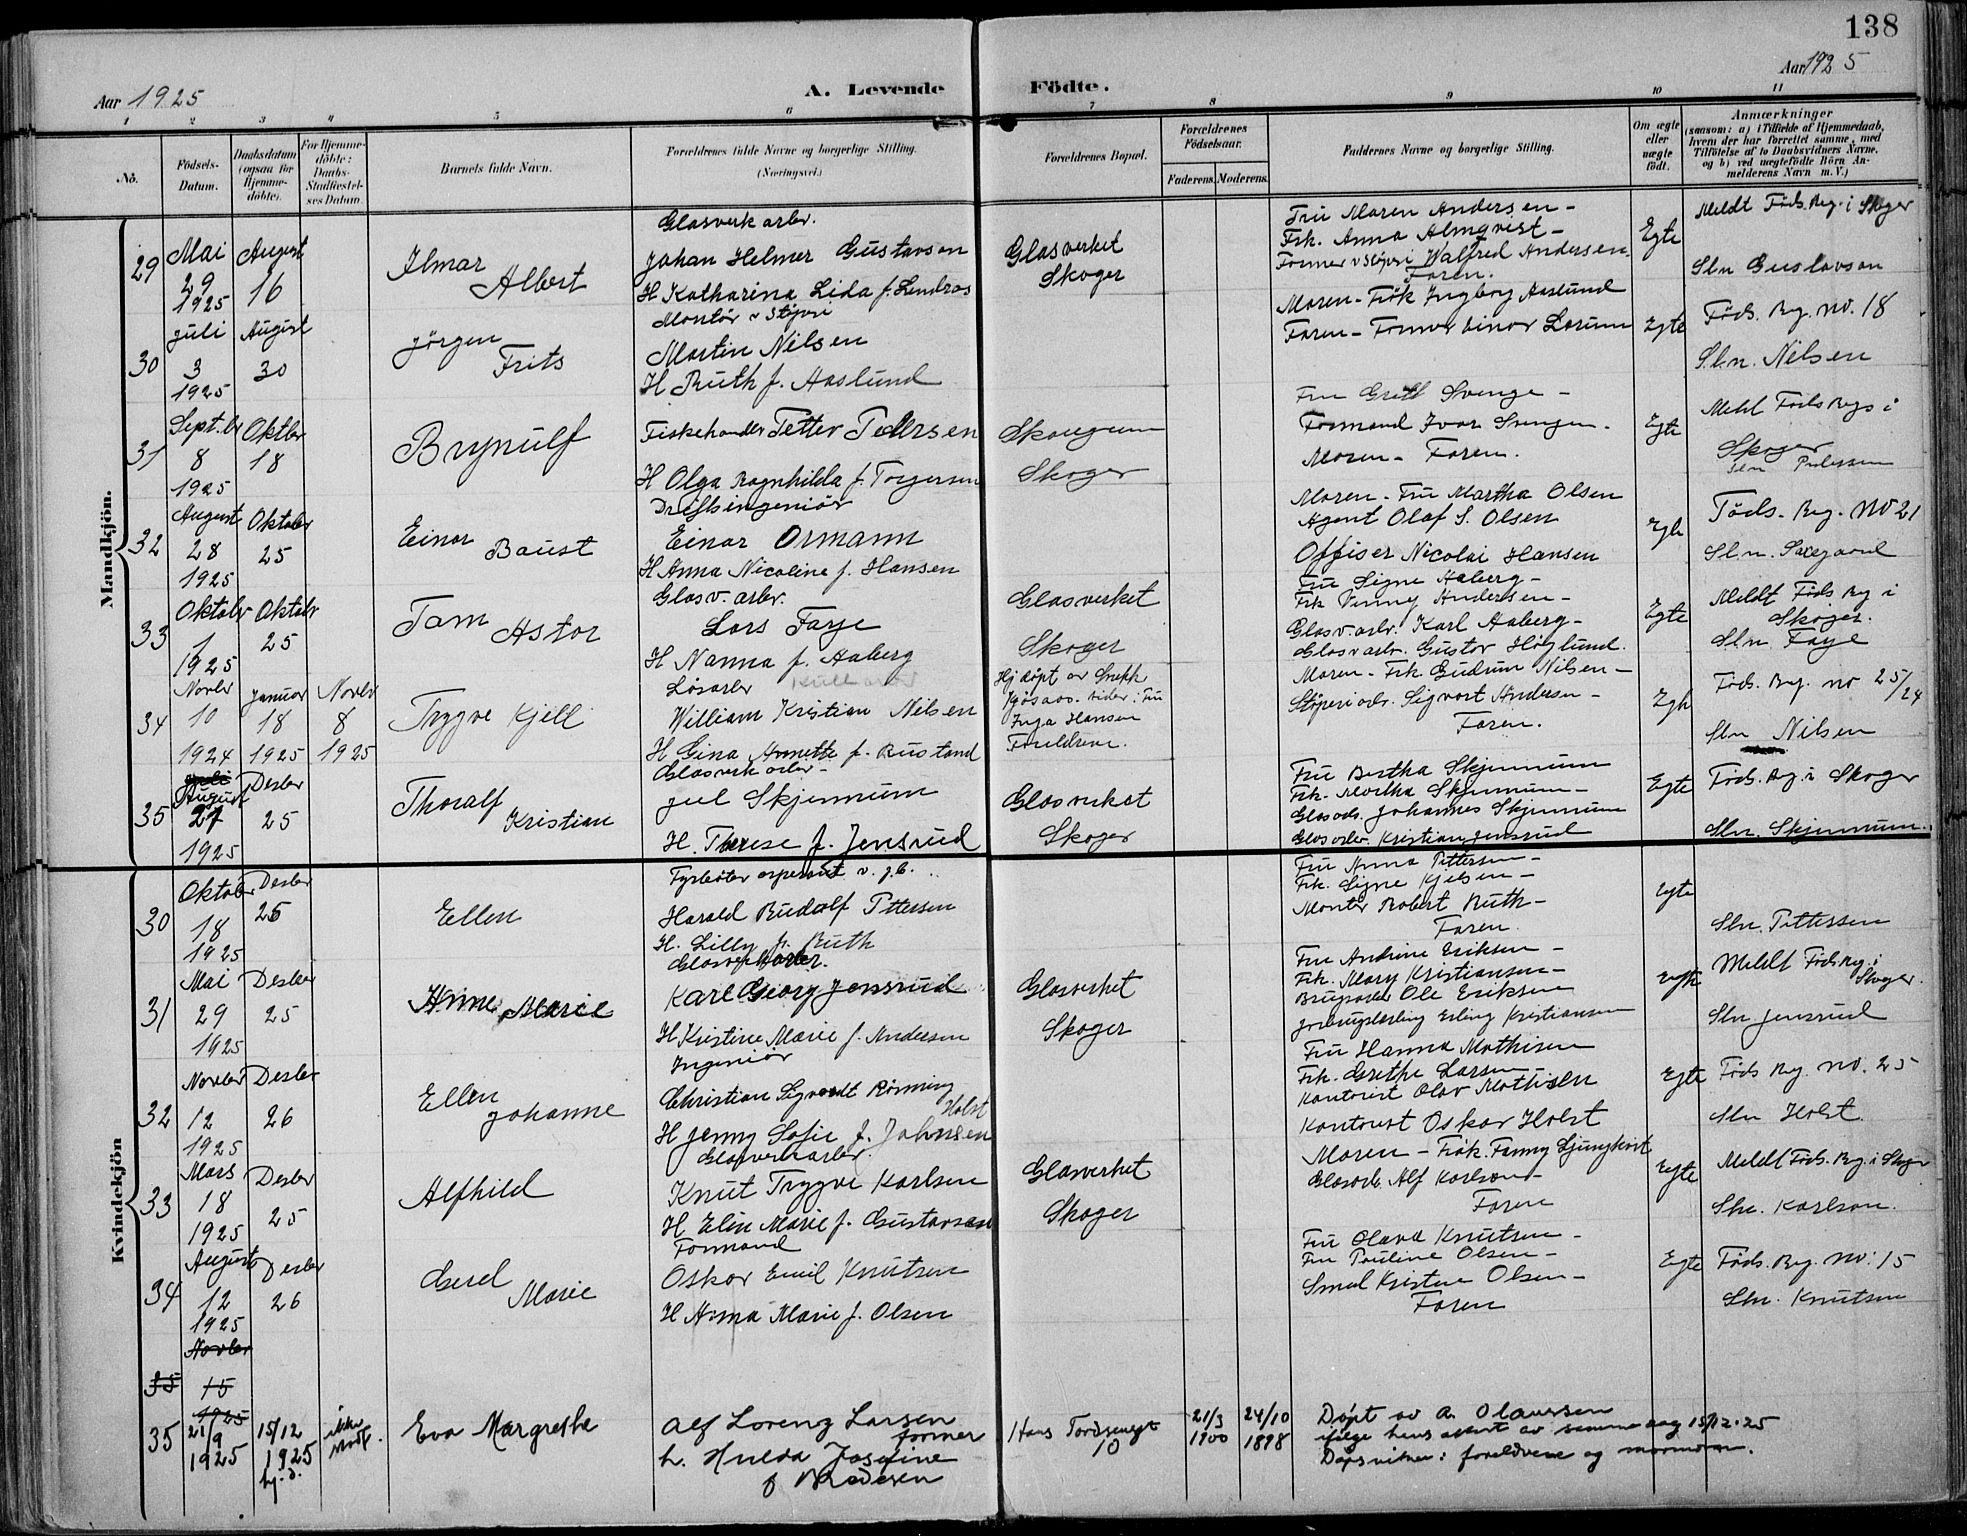 138
Aar 1925
A. Levende Födte.
Aar 1925
1 2 3 4 5 6 7 8 9 10 11
No.
Födsels-Datum.
Daabsdatum (ogsaa for Hjemmedöbte).
For Hjemmedöbte: Daabs-Stadfæstelses Datum.
Barnets fulde Navn.
Forældrenes fulde Navne og borgerlige Stilling.
(Næringsvei.)
Forældrenes Bopæl.
Forældrenes Födselsaar.
Faderens. Moderens.
Faddernes Navne og borgerlige Stilling.
Om ægte eller uægte födt.
Anmærkninger
(saasom: a) i Tilfælde af Hjemmedaab, hvem der har forrettet samme, med Tilföielse af to Daabsvidners Navne, og b) ved uægtefödte Börn Anmelderens Navn m. V.)
Mandkjön.
29
Mai 29 1925
August 16
Ilmar Albert
Glasverk arbr.
Johan Helmer Gustavson
H Katharina Lida f. Lendros
Glasverket
Skoger
Fru Maren Andersen -
Frk. Anna Almqvist -
Former v Støperi Walfred Andersen.
Faren.
Egte
Meldt Føds. Reg. i Skoger
Sln Gustavson
30
Juli 3 1925
August 30
Jørgen Frits
Montør v Støperi
Martin Nilsen
H Ruth f. Aaslund
Moren - Frøk Ingborg Aaslund
Faren - Former Einar Lorum
Egte
Føds. Reg. no. 18
Sln. Nilsen
31
Sept.br 8 1925
Oktbr 18
Brynulf
Fiskehandler Petter Pedersen
H Olga Ragnhilda f. Torgersen
Skaugum
Skoger
Fru Svenge -
Formand Ivar Svengen.
Moren - Faren.
Egte
Meldt Føds Regs i
Skoger
Sln
32
August 28 1925
Oktober 25
Einar Baust
Driftsingeniør
Einar Ormann
H Anna Nicoline f. Hansen
Moren - Fru Martha Olsen
Agent Olaf S. Olsen
Offiser Nicolai Hansen
Føds. Reg. no 21
33
Oktobr 1 1925
Oktobr 25
Tam Astor
Glasv. arbr.
Lars Faye
H Nanna f. Aaberg
Glasverket
Skoger
Fru Signe Aaberg -
Frk Andersen -
Glasv. arbr. Karl Aaberg -
Glasv arbr. Gustav Höglund.
Egte
Meldt Føds Reg i
Skoger.
Sln Faye
34
Novbr 10 1924
Januar 18 1925
Novbr 8 1925
Trygve Kjell
Løsarbr
William Kristian Nilsen
H Gina Annette f. Rustand
Hj døpt av
Inga Hansen
Foreldrene.
Moren - Frk Gudrun Nilsen -
Støperiarb. Sigvart Andersen -
Faren.
Føds. Reg. no 25/24
Sln Nilsen
35
August 27 1925
Desbr 25
Thoralf Kristian
Glasverk arbr -
Jul Skjennum
H. Therese f. Jensrud
Glasverket
Skoger
Fru Bertha Skjennum
Frk. Martha Skjennum -
Glasarb. Johannes Skjennum
Glasarbr. Kristian Jensrud
Egte
Føds. Reg i Skoger
Sln. Skjennum.
Kvindekjön
30
Oktober 18 1925
Desbr 25
Ellen
Harald Rudolf Pettersen
H. Lilly f. Ruth
Fru Anna Pettersen -
Frk. Signe
Montør Robert Ruth -
Faren.
Egte
Sln. Pettersen
31
Mai 29 1925
Desbr 25
Anne Marie
Glasverkarbr.
Karl Georg Jensrud
H Kristine Marie f. Andersen
Glasverket
Skoger
Fru Andrine Eriksen -
Frk. Mary Kristiansen -
Ole Eriksen
Erling Kristiansen
Egte
Meldt Føds Reg. i
Skoger.
Sln. Jensrud
32
Novbr 12 1925
Desbr 26
Ellen Johanne
Ingeniør
Christian Sigvardt Rönning Holst
H Jenny Sofie f. Johnsen
Fru Hanna Mathisen
Frk. Grethe Larsen
Kontorist Olav Mathisen
Kontorist Oskar Holst
Egte
Føds Reg. no. 25
Sln Holst.
33
Mars 18 1925
Desbr 25
Alfhild
Glasverkarbr.
Knut Trygve Karlsen
H. Elin Marie f. Gustavsen
Glasverket
Skoger
Moren - Frøk. Fanny Ljungkvist
Glasarb. Alf Karlson -
Faren
Egte
Meldt Føds. Reg. i Skoger
Sln. Karlson.
34
August 12 1925
Desbr 26
Gerd Marie
Formand
Oskar Emil Knutsen
H Anna Marie f. Olsen
Fru Olava Knutsen -
Fru Pauline Olsen -
Smed Kristen Olsen -
Faren
Egte
Føds. Reg. no: 15
Sln. Knutsen
35
Novbr
15
1925
35
21/9 1925
15/12 1925 hj. d.
ikke
Eva Margrethe
Alf Lorenz Larsen
former
h. Hulda Josefine
f
Hans Tordsensgt 10
21/3 1900
24/10 1898
Døpt av A. Olaussen
ifølge hans attest av samme dag 15/12-25
Dåpsvitner: foreldrene og mormoren.